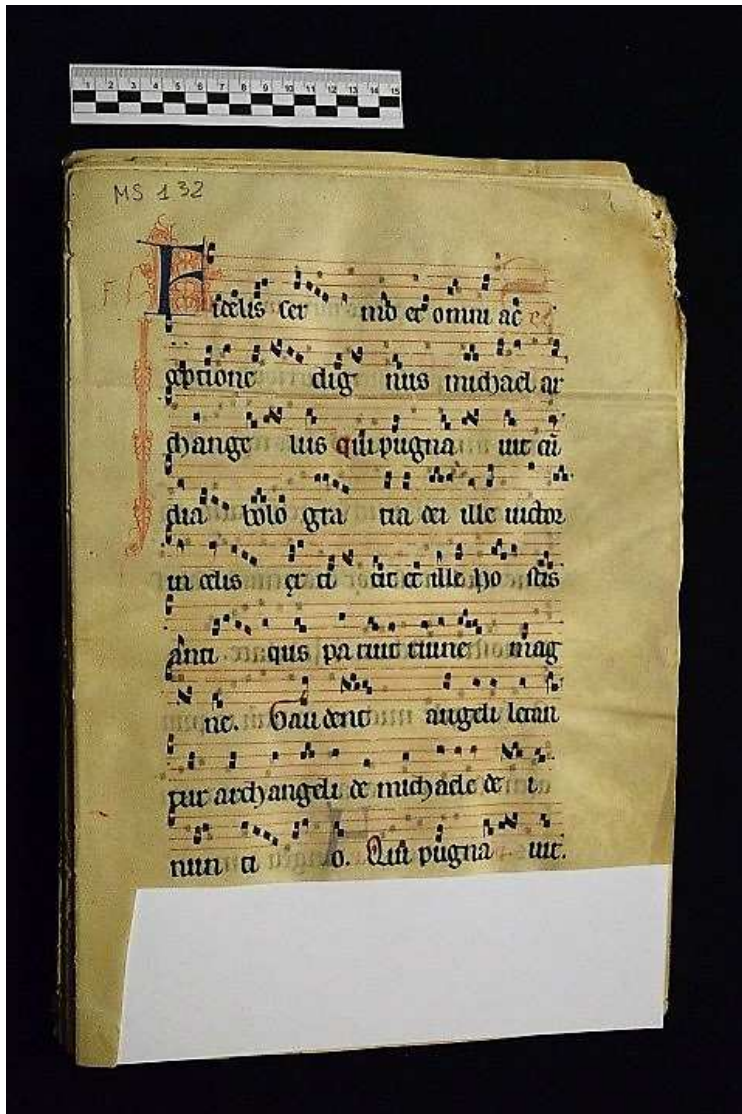 1 2 3 4 5 6 7 8 9 10 11 12 13 14 15
MS 132
F
Fidelis ser mo et omni ac
ceptione dig nus michael ar
change lus qui pugna uit cũ
dia bolo gra tia dei ille uictor
in celis et ille ho stis
anti qus pa tiut magne
ne. Gaudent angeli letan
tur archangeli de michaele de i
nun ti o. Qui pugna uit.